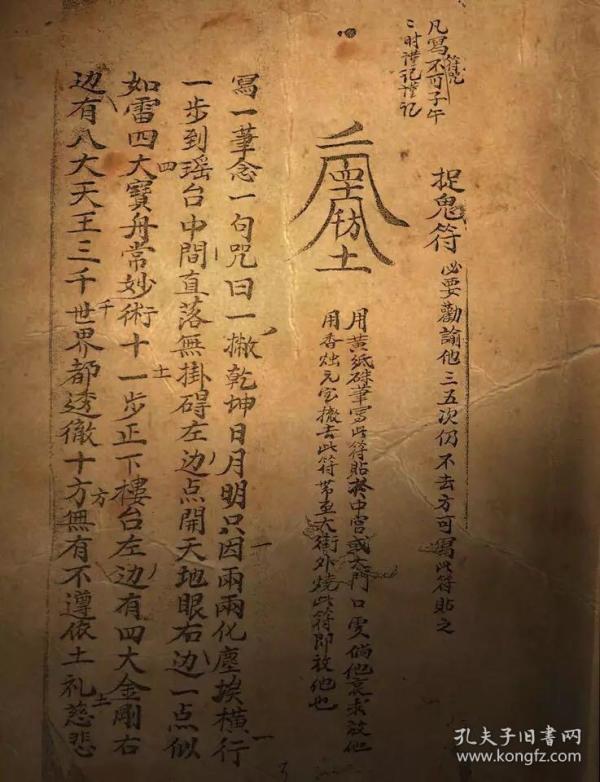 凡寫符咒不可子午
二时謹记謹记
捉鬼符
必要勸諭他三五次仍不去方可寫此符貼之
用黄紙硃筆寫此符貼於中宫或大門口处倘他哀求放他
用香烛元宝撤去此符带至大街外燒此符即放他也
寫一筆念一句咒曰一撇乾坤日月明只因兩兩化塵埃橫行
一步到瑶台中間直落無掛碍左边点開天地眼右边一点似
如雷四大寶舟常妙術十一步正下樓台左边有四大金剛右
边有八大天王三千世界都透徹十方無有不遵依土礼慈悲
孔夫子旧书网
www.kongfz.com